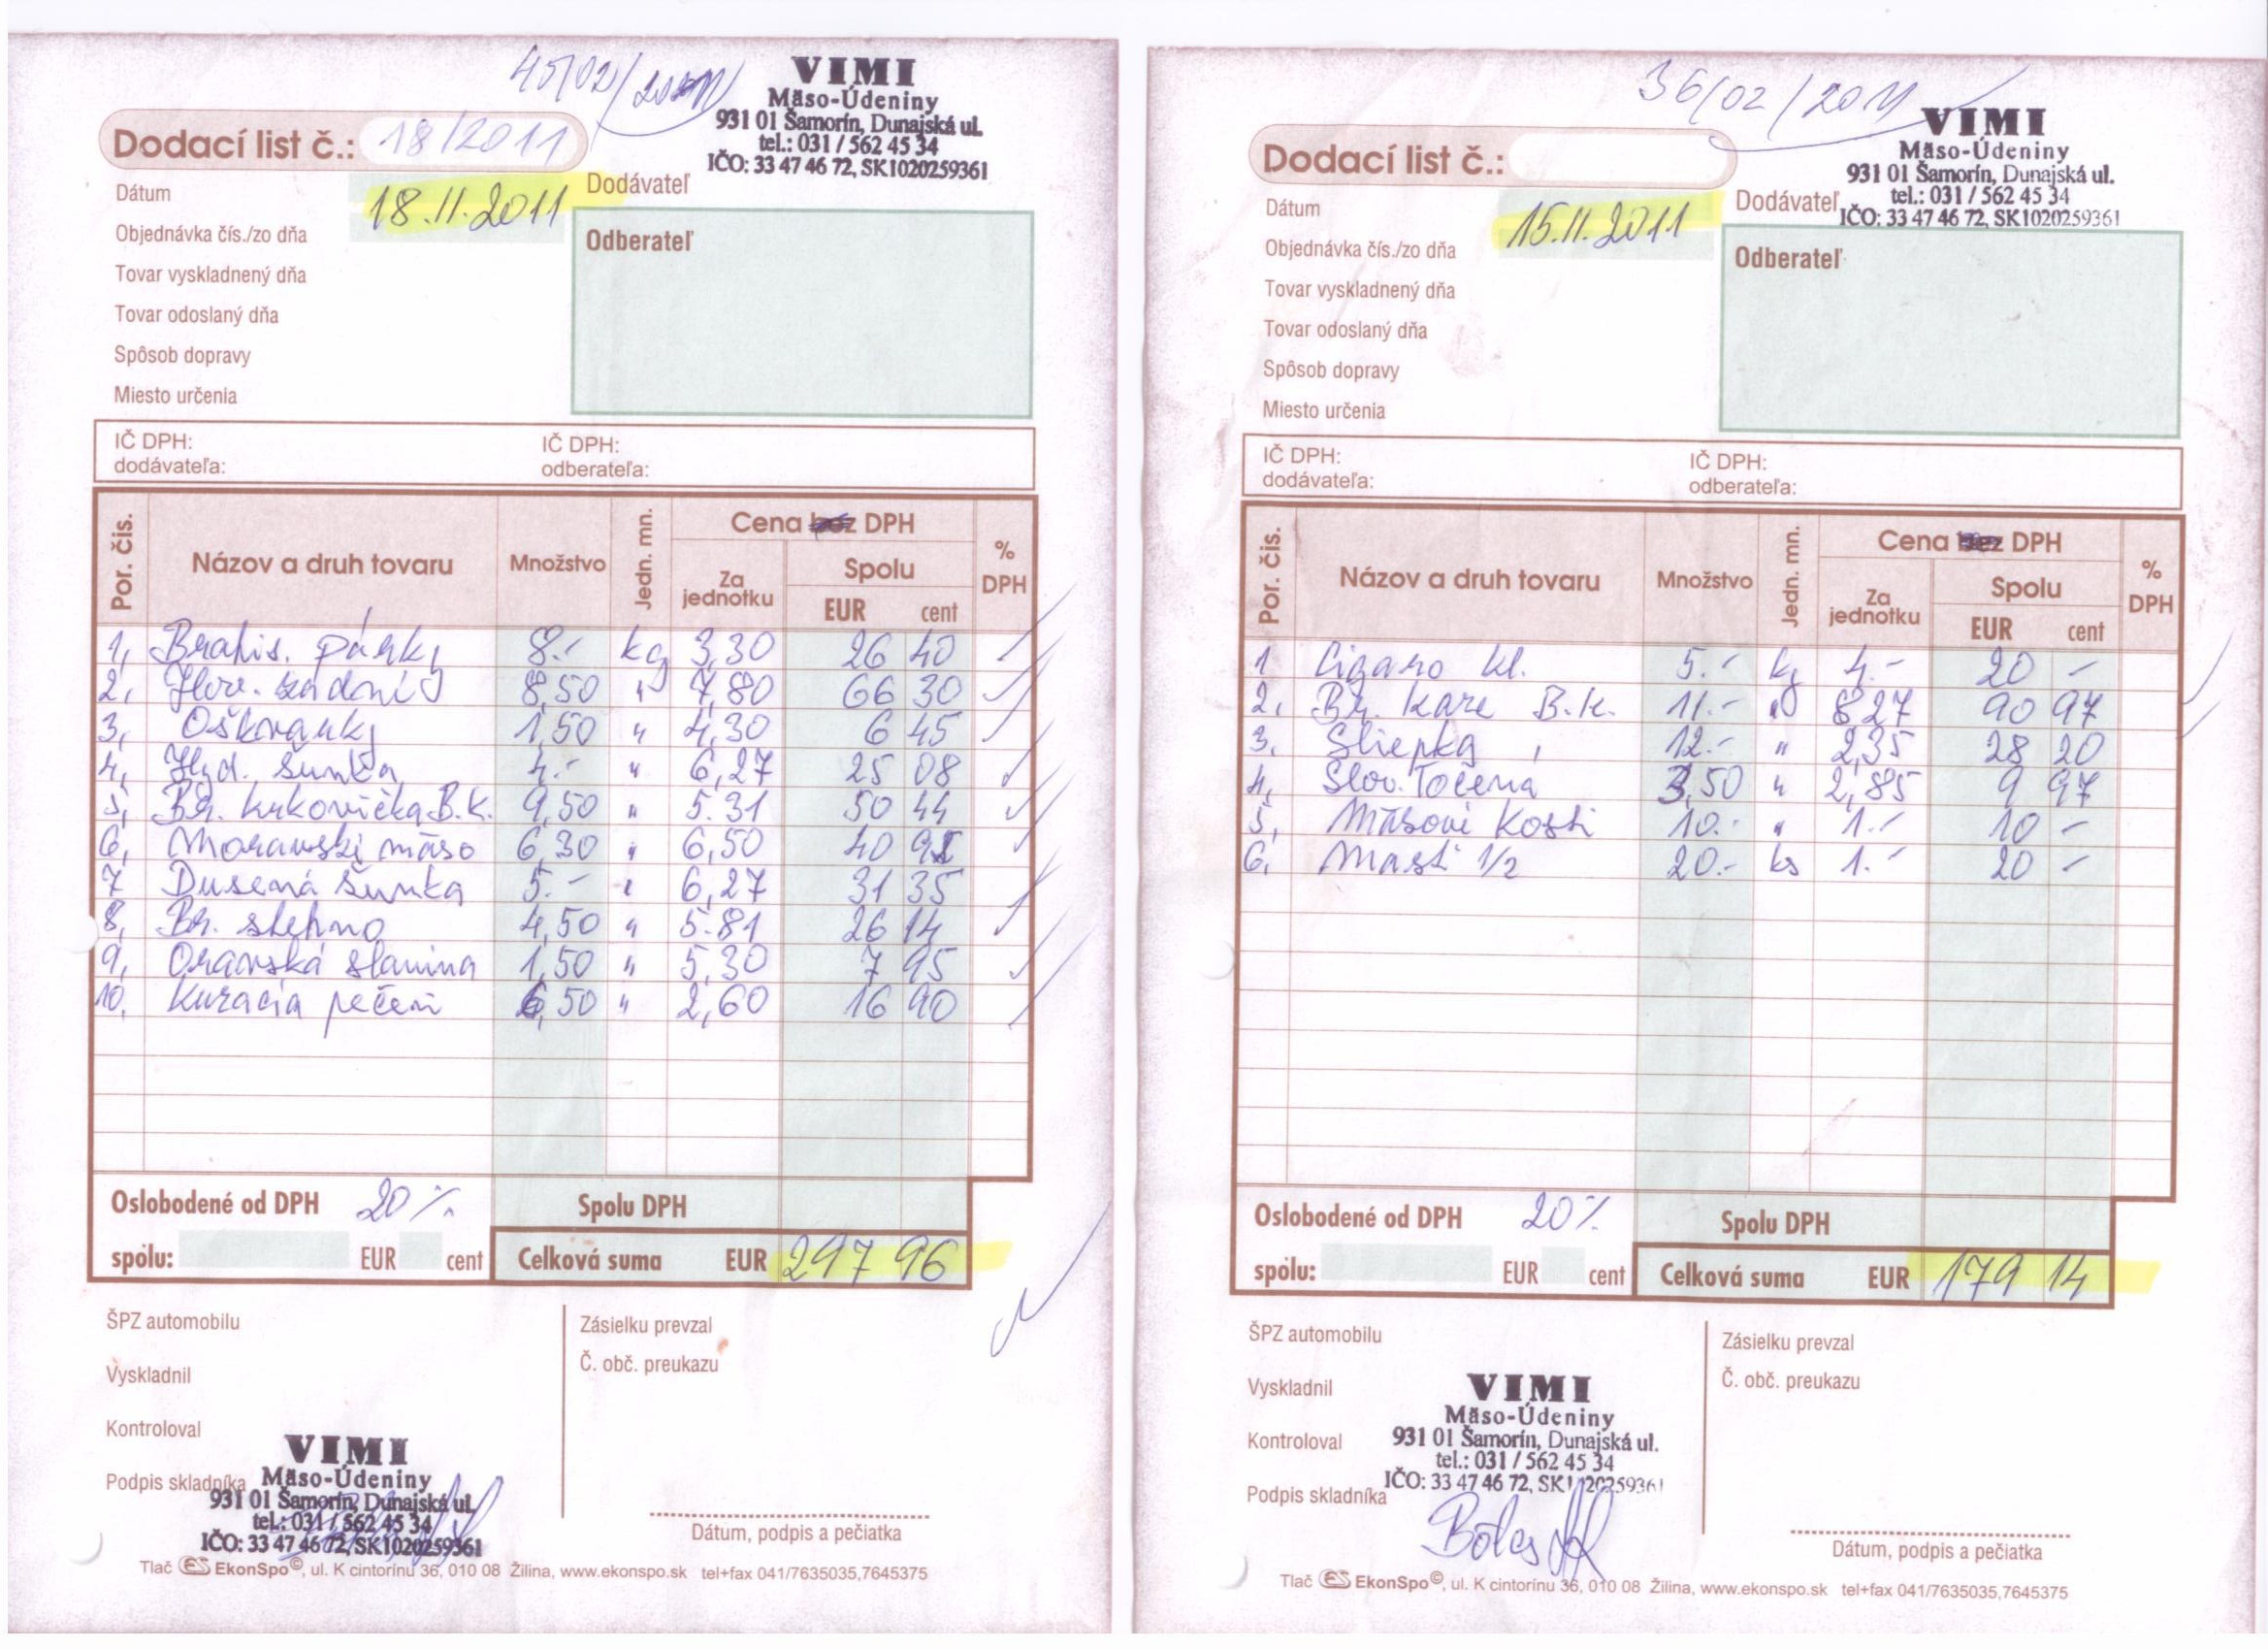 45/02/2011
VIMI
Mäso-Údeniny
931 01 Šamorín, Dunajská ul.
tel.: 031 / 562 45 34
IČO: 33 47 46 72, SK1020259361
Dodací list č.: 18/2011
Dátum 18.11.2011
Dodávateľ
Objednávka čís./zo dňa
Odberateľ
Tovar vyskladnený dňa
Tovar odoslaný dňa
Spôsob dopravy
Miesto určenia
IČ DPH: IČ DPH:
dodávateľa: odberateľa:
Por. čís. Názov a druh tovaru Množstvo Jedn. mn. Cena bez DPH % DPH
Za jednotku Spolu
EUR cent
1, Bratis. párky 8.- kg 3,30 26 40
2, Hov. zadní 8,50 " 7,80 66 30
3, Oškvarky 1,50 " 4,30 6 45
4, Hyd. šunka 4.- " 6,27 25 08
5, Br. krkovička B.K. 9,50 " 5.31 50 44
6, Moravski mäso 6,30 " 6,50 40 95
7 Dusená šunka 5.- " 6,27 31 35
8, Br. stehno 4,50 " 5.81 26 14
9, Oravská slanina 1,50 " 5,30 7 95
10, Kuracia pečeni 6,50 " 2,60 16 90
Oslobodené od DPH 20% Spolu DPH
spolu: EUR cent Celková suma EUR 297 96
ŠPZ automobilu
Zásielku prevzal
Č. obč. preukazu
Vyskladnil
Kontroloval
Podpis skladníka
VIMI
Mäso-Údeniny
931 01 Šamorín, Dunajská ul.
tel.: 031 / 562 45 34
IČO: 33 47 46 72, SK1020259361
Dátum, podpis a pečiatka
Tlač ES EkonSpo©, ul. K cintorínu 36, 010 08 Žilina, www.ekonspo.sk tel+fax 041/7635035,7645375
36/02/2011
VIMI
Mäso-Údeniny
931 01 Šamorín, Dunajská ul.
tel.: 031 / 562 45 34
IČO: 33 47 46 72, SK1020259361
Dodací list č.:
Dátum 15.11.2011
Dodávateľ
Objednávka čís./zo dňa
Odberateľ
Tovar vyskladnený dňa
Tovar odoslaný dňa
Spôsob dopravy
Miesto určenia
IČ DPH: IČ DPH:
dodávateľa: odberateľa:
Por. čís. Názov a druh tovaru Množstvo Jedn. mn. Cena bez DPH % DPH
Za jednotku Spolu
EUR cent
1 Cigaro kl. 5.- kg 4.- 20 -
2, Br. kare B.K. 11.- " 8,27 90 97
3, Sliepka 12.- " 2,35 28 20
4, Slov. Točená 3,50 " 2,85 9 97
5, Mäsové kosti 10.- " 1.- 10 -
6, Masti 1/2 20.- ks 1.- 20 -
Oslobodené od DPH 20% Spolu DPH
spolu: EUR cent Celková suma EUR 179 14
ŠPZ automobilu
Zásielku prevzal
Č. obč. preukazu
Vyskladnil
Kontroloval
Podpis skladníka
VIMI
Mäso-Údeniny
931 01 Šamorín, Dunajská ul.
tel.: 031 / 562 45 34
IČO: 33 47 46 72, SK1020259361
Dátum, podpis a pečiatka
Tlač ES EkonSpo©, ul. K cintorínu 36, 010 08 Žilina, www.ekonspo.sk tel+fax 041/7635035,7645375